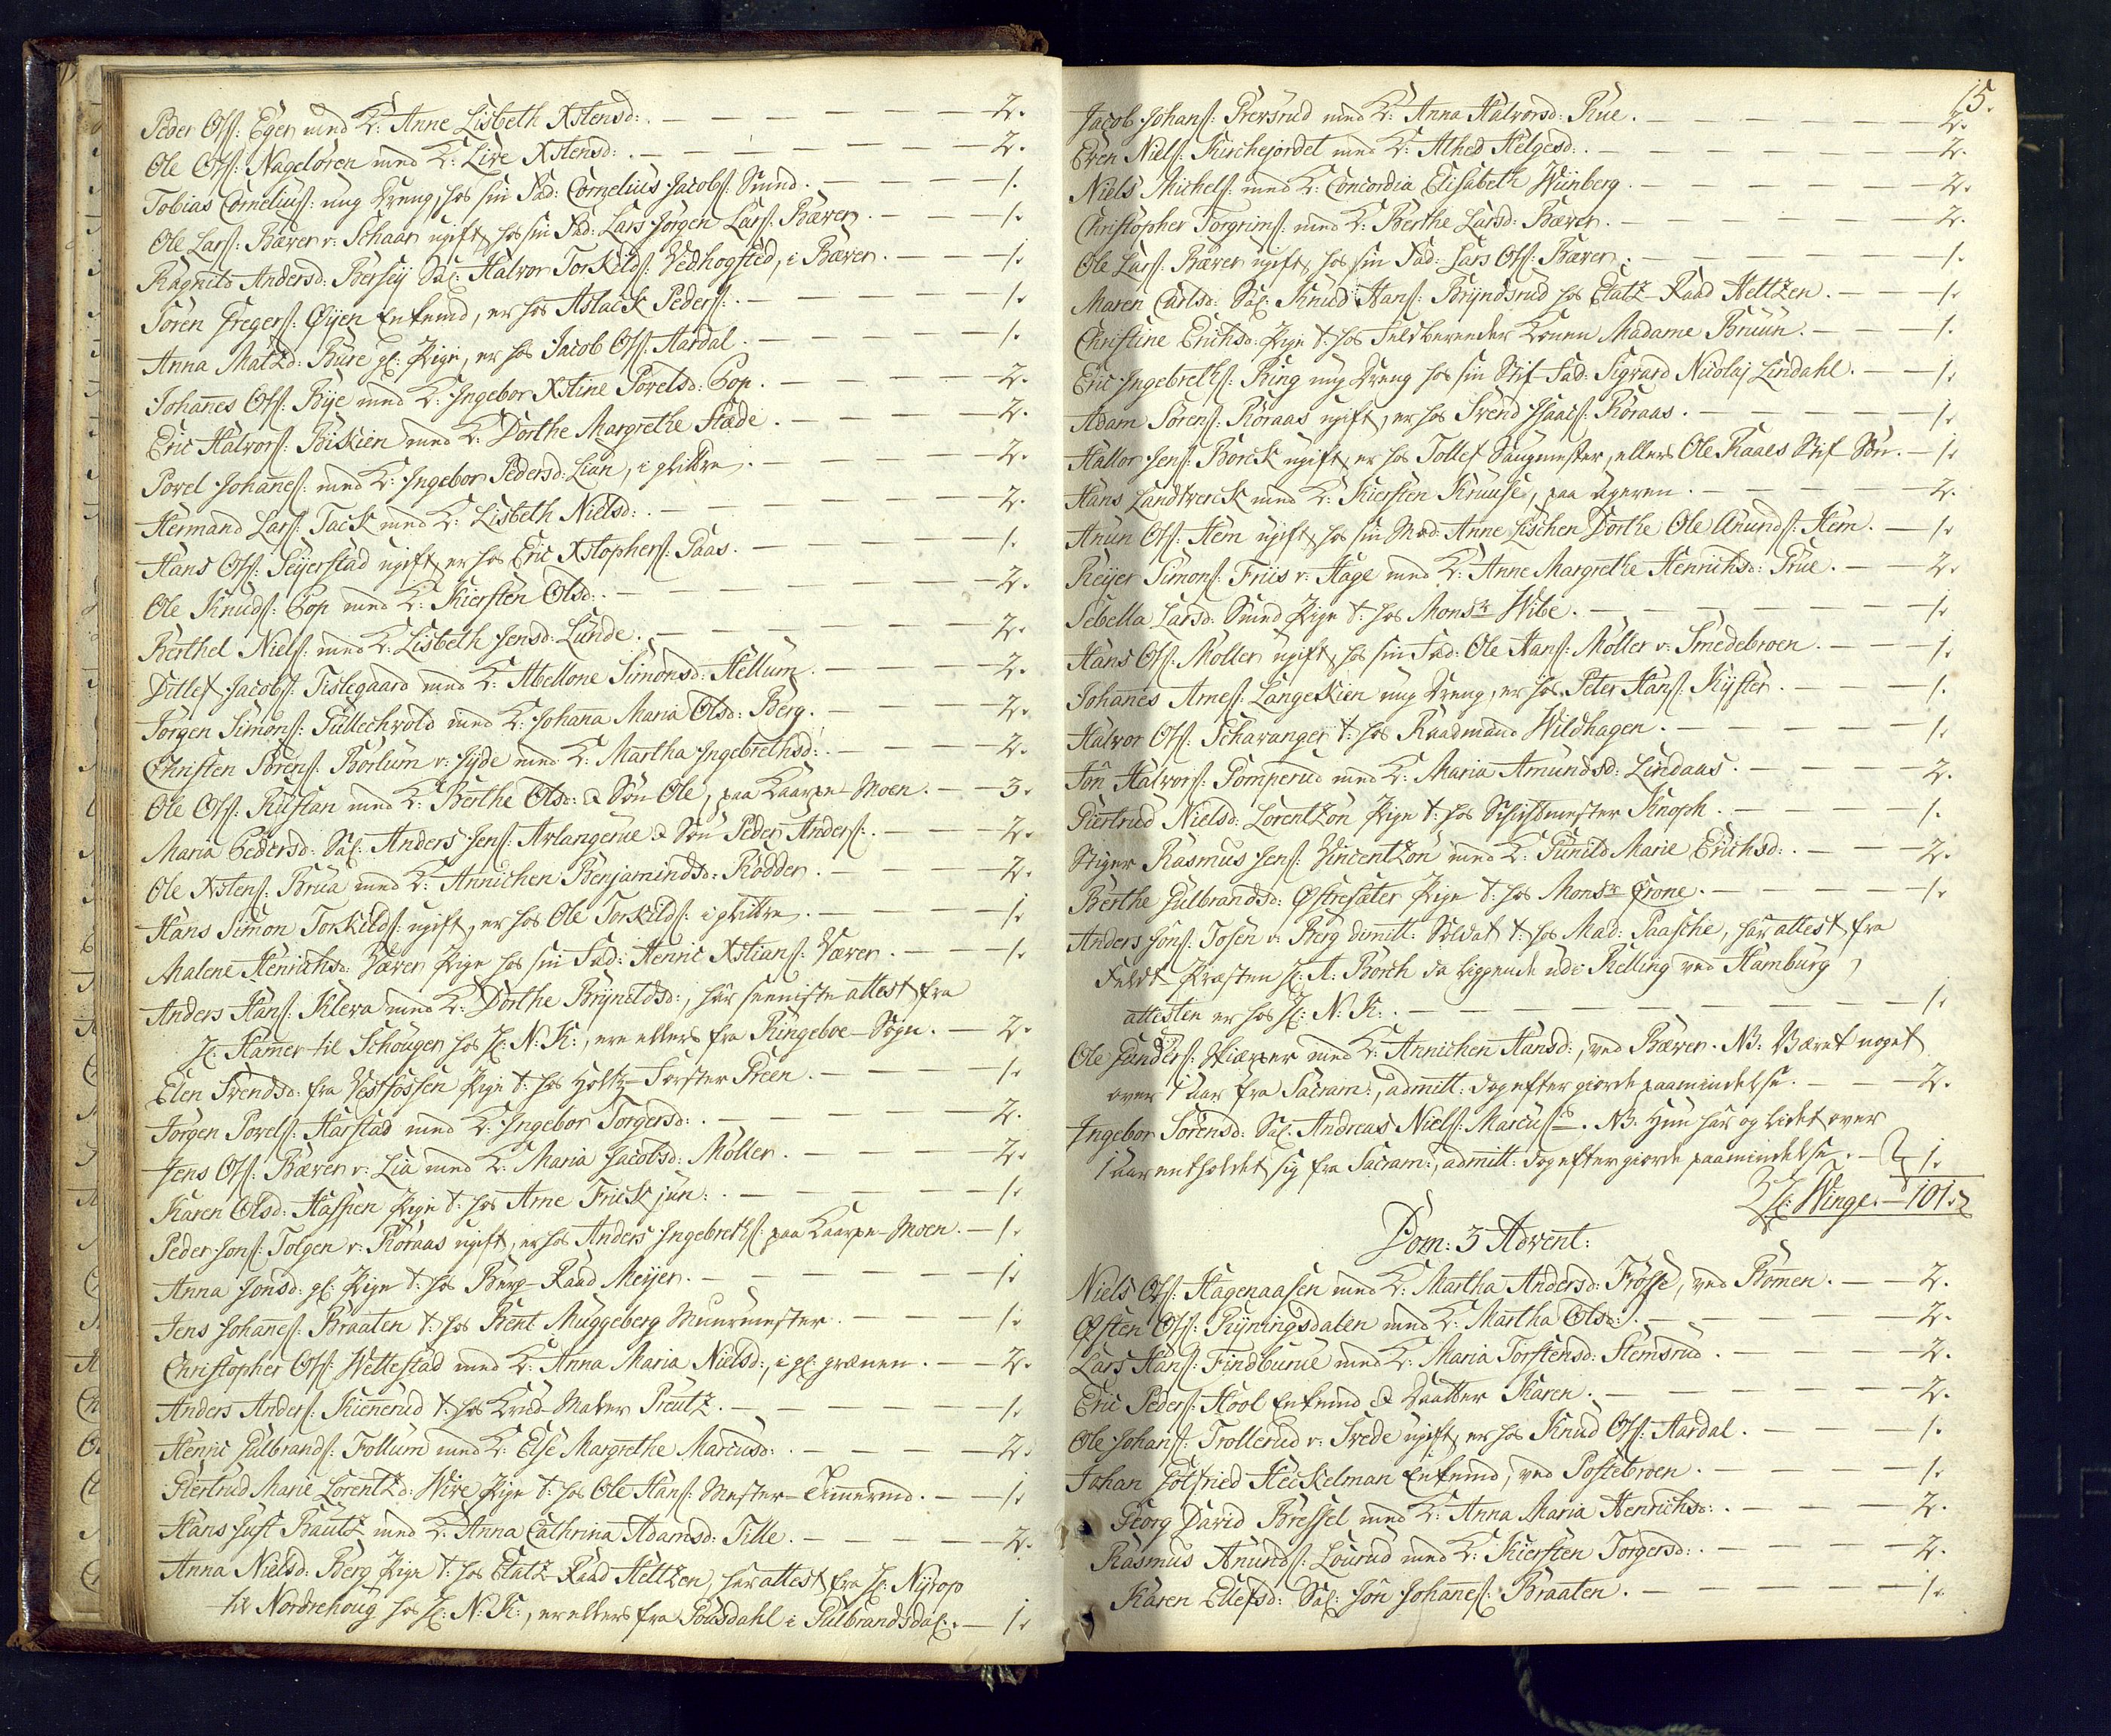 Peder Ols: Eger med K: Anne Lisbeth Xstensd: . — — — — — — 2.
Ole Ols: Nageløren med K: Live Xstensd: . — — — — — — 2.
Tobias Cornelius: ung Dreng, hos sin Fad: Cornelius Jacobs: Smed. — — — — 1.
Ole Lars: Bæver v: Schaar ugift, hos sin Fad: Lars Jørgen Lars: Bæver. — — — 1.
Ragnild Andersd: Bersej Sal: Halvor Torkilds: Vedhogsted, i Bæver. — — — 1.
Søren Gregers: Øijen Enkemd, er hos Aslack Peders: . — — — — — 1.
Anna Matzd: Bure gl: Pige, er hos Jacob Ols: Aardal. — — — — — 1.
Johanes Ols: Bije med K: Ingebor Xstine Povelsd: Cop. — — — — — 2.
Eric Halvors: Biskien med K: Dorthe Margrethe Stæde. — — — — 2.
Povel Johanes: med K: Ingebor Pedersd: Lian, i glittre. — — — — 2.
Hermand Lars: Tack med K: Lisbeth Nielsd: . — — — — — 2.
Hans Ols: Seijerstad ugift, er hos Eric Xstophers: Paas. — — — — 1.
Ole Knuds: Cop med K: Kiersten Olsd: . — — — — — 2.
Berthel Niels: med K: Lisbeth Jensd: Lunde. — — — — — 2.
Ditlef Jacobs: Tislegaard med K: Abellone Simonsd: Hellum. — — — — 2.
Jørgen Simons: Gullechvold med K: Johana Maria Olsd: Berg. — — — — 2.
Christen Sørens: Borlum v: Hyde med K: Martha Ingebrethsd: . — — — 2.
Ole Ols: Rustan med K: Berthe Olsd: & Søn Ole, paa Kaarpe-Moen. — — 3.
Maria Pedersd: Sal: Anders Jens: Avlangerue & Søn Peder Anders: . — — — 2.
Ole Xstens: Brua med K: Annichen Benjamindsd: Rødder. — — — — 2.
Hans Simon Torkilds: ugift, er hos Ole Torkilds: i glittre. — — — — 1.
Malene Henrichsd: Væver Pige hos sin Fad: Henric Xstians: Væver. — — — 1.
Anders Hans: Kleva med K: Dorthe Brynildsd:, har seeniste attest fra
H: Hamer til Schougen hos H: N: K:, ere ellers fra Ringeboe-Sogn. — 2.
Elen Svendsd: fra Vestfossen Pige t: hos Holtz-Førster Preen. — — — 1.
Jørgen Povels: Harstad med K: Ingebor Torgersd: . — — — — — 2.
Jens Ols: Bæver v: Lia med K: Maria Jacobsd: Møller. — — — — 2.
Karen Olsd: Haspen Pige t: hos Arne Frick jun: . — — — — — 1.
Peder Jons: Tolgen v: Røraas ugift, er hos Anders Ingebreths: paa Kaarpe-Moen. — 1.
Anna Jonsd: gl: Pige t: hos Berg-Raad Meyer. — — — — — 1.
Jens Johanes: Braaten t: hos Bent Muggeberg Muurmester. — — — — 1.
Christopher Ols: Wettestad med K: Anna Maria Nielsd:, i gl: grænen. — — 2.
Anders Anders: Kienerud t: hos Krud-Mager Preutz. — — — — — 1.
Henric Gulbrands: Follum med K: Else Margrethe Marcusd: . — — — — 2.
Giertrud Marie Lorentzd: Wire Pige t: hos Ole Hans: Mester-Timermd. — — 1.
Hans Just Bautz med K: Anna Cathrina Adamsd: Tille. — — — — 2.
Anna Nielsd: Berg Pige t: hos Etatz-Raad Heltzen, har attest fra H: Nyrop
til Nordrehoug hos H: N: K:, er ellers fra Gousdahl i Gulbrandsdal. — 1.
15.
Jacob Johans: Preesrud med K: Anna Halvorsd: Rue. — — — — — 2.
Even Niels: Kirchejordet med K: Athed Helgesd: . — — — — — 2.
Niels Michels: med K: Concordia Elisabeth Wünberg. — — — — — 2.
Christopher Torgrims: med K: Berthe Larsd: Bæver. — — — — — 2.
Ole Lars: Bæver ugift, hos sin Fad: Lars Ols: Bæver. — — — — — 1.
Maren Carlsd: Sal: Knud Hans: Bryndsrud hos Etatz-Raad Heltzen. — — — 1.
Christine Erichsd: Pige t: hos Feldbereder Konen Madame Bruun. — — — 1.
Eric Ingebreths: Ring ung Dreng hos sin Stif-Fad: Sigvard Nicolaj Lindahl. — — 1.
Adam Sørens: Røraas ugift, er hos Svend Isaacs: Røraas. — — — — 1.
Hallor Jens: Borck ugift, er hos Tollef Saugmester, ellers Ole Raaes Stif-Søn. — 1.
Hans Landtverck med K: Kiersten Kruuse, paa ageren. — — — — 2.
Anun Ols: Hem ugift, hos sin Mod: Anne Lischen Dorthe Ole Anunds: Hem. — 1.
Reijer Simons: Friis v: Hage med K: Anne Margrethe Henrichsd: Prue. — — 2.
Sebella Larsd: Smed Pige t: hos Monsr Wibe. — — — — — 1.
Hans Ols: Møller ugift, hos sin Fad: Ole Hans: Møller v: Smedebroen. — — — 1.
Johanes Arnes: Langeskien ung Dreng, er hos Peter Hans: Kyster. — — — 1.
Halvor Ols: Schavanger t: hos Raadmand Wildhagen. — — — — — 1.
Jøn Halvors: Pomperud med K: Maria Amundsd: Lindaas. — — — — 2.
Giertrud Nielsd: Lorentzon Pige t: hos Schichtmester Knoph. — — — — 1.
Stiger Rasmus Jens: Vincentzon med K: Gunild Marie Erichsd: . — — — 2.
Berthe Gulbrandsd: Østresæter Pige t: hos Monsr Crone. — — — — 1.
Anders Jons: Tosen v: Berg dimitt: Soldat t: hos Mad: Paasche, har attest fra
Feldt-Præsten H: A: Borch da liggende udi Relling ved Hamburg,
attesten er hos H: N: K: . — — — — — — — 1.
Ole Gunders: Skiærer med K: Annichen Hansd:, ved Bæver. NB: Været noget
over 1 Aar fra Sacram:, admitt: dog efter giorde paamindelse. — — — 2.
Ingebor Sørensd: Sal: Andreas Niels: Marcuss. NB: Hun har og lidet over
1 aar entholdet sig fra Sacram:, admitt: dog efter giorde paamindelse. — 1.
H: Winge. — 101.
Dom: 3 Advent:
Niels Ols: Hagenaasen med K: Martha Andersd: Frøsse, ved Bomen. — — 2.
Østen Ols: Ryningsdalen med K: Martha Olsd: . — — — — — 2.
Lars Hans: Findburue med K: Maria Torstensd: Stemsrud. — — — — 2.
Eric Peders: Hool Enkemd & Daatter Karen. — — — — — 2.
Ole Johans: Trollerud v: Svede ugift, er hos Knud Ols: Aardal. — — — 1.
Johan Gotfried Heickelman Enkemd, ved Postebroen. — — — — 1.
Georg David Bressel med K: Anna Maria Henrichsd: . — — — — 2.
Rasmus Anunds: Lourud med K: Kiersten Torgersd: . — — — — 2.
Karen Ellefsd: Sal: Jøn Johanes: Braaten. — — — — — 1.